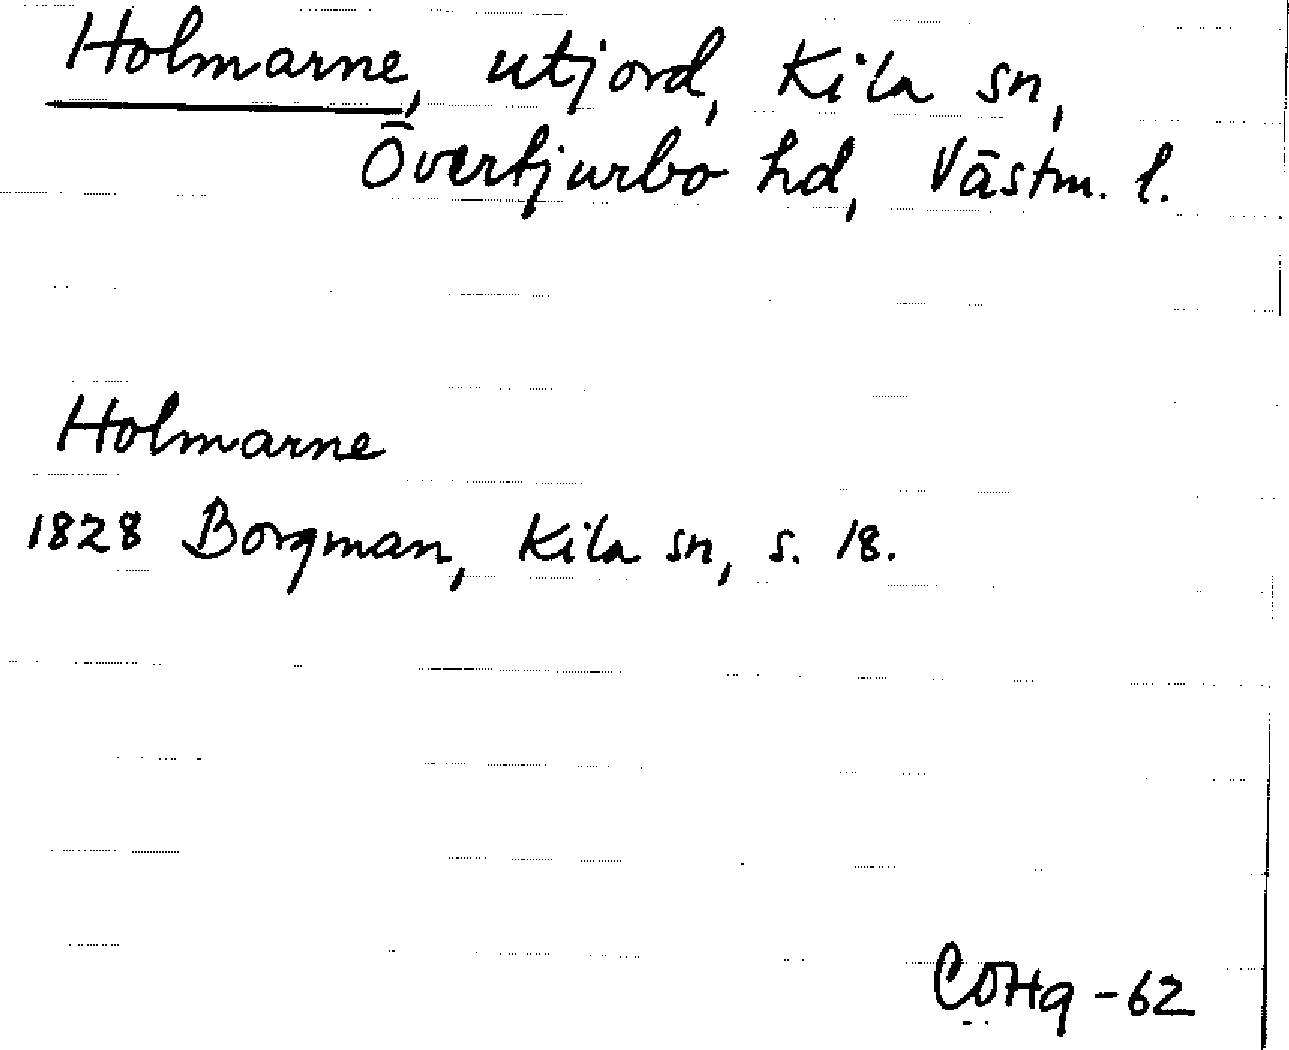 Holmarne, utjord, Kila sn,
Övertjurbo hd, Västm. l.
Holmarne
1828 Borgman, Kila sn, s. 18.
COHg -62